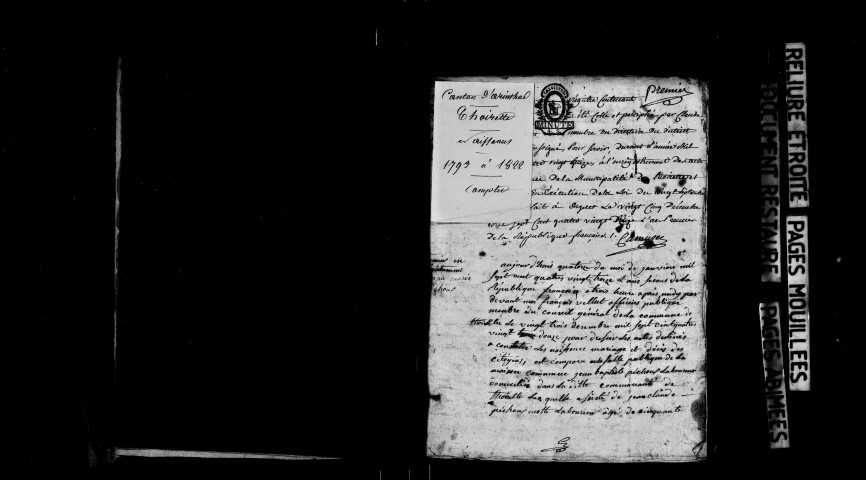 Canton d'arinthod
Thoirette
Naissances
1793 à 1822
Complet
premier
MINUTE
registre Contenant
été Cotté et paraphé par Claude
membre du directoire du district
pour servir, durant l'année mil
vingt treize, à l'enregistrement des actes
de la Municipalité de
Exécution de la loi du vingt septembre
fait à Orgelet Le vingt Cinq Décembre
mil sept Cent quatre vingt Douze l'an premier
de la République françoise /.
aujourd'hui quatorze du moi de janvier mil
sept cent quatres vingt treize l'ans second de la
République françoise a trois heure après midy par
devant moi françois officier publique
membre du Conseil général de la commune de
le vingt trois desembre mil sept cent quatre
vingt douze pour dresser les actes destinés
a constater les naissence mariage et décès des
citoyens, est comparu en la salle publique de la
maison commune jean baptiste pichon Laboureur
domicilié dans la ditte communauté de
Thoirette Lequelle assisté de jean claude
pichon Laboureur âgé de cinquante
RELIURE ETROITE
PAGES MOUILLEES
DOCUMENT RESTAURE
PAGES ABIMEES